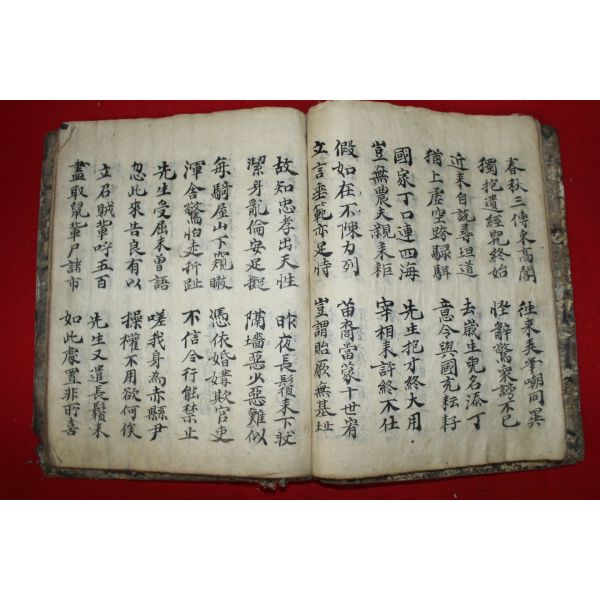 春秋三傳束髙閣
獨抱遺經究終始
往来弄筆嘲同異
怪辭驚衆謗不已
近来自說尋坦道
猶上虛空跨騄駬
去歲生兒名添丁
意令與國充耘耔
國家丁口連四海
豈無農夫親耒耟
先生抱才終大用
宰相未許終不仕
假如在不陳力列
立言垂範亦足恃
苗裔當蒙十世宥
豈謂貽厥無基址
故知忠孝出天性
潔身亂倫安足擬
昨夜長鬚来下狀
隔墻惡少惡難似
每騎屋山下窺瞰
渾舍驚怕走折趾
憑依婚媾欺官吏
不信令行能禁止
先生受屈未曾語
忽此來告良有以
嗟我身為赤縣尹
操權不用欲何俟
立召賊輩呼五百
盡取鼠輩尸諸市
先生又遣長鬚来
如此處置非所喜